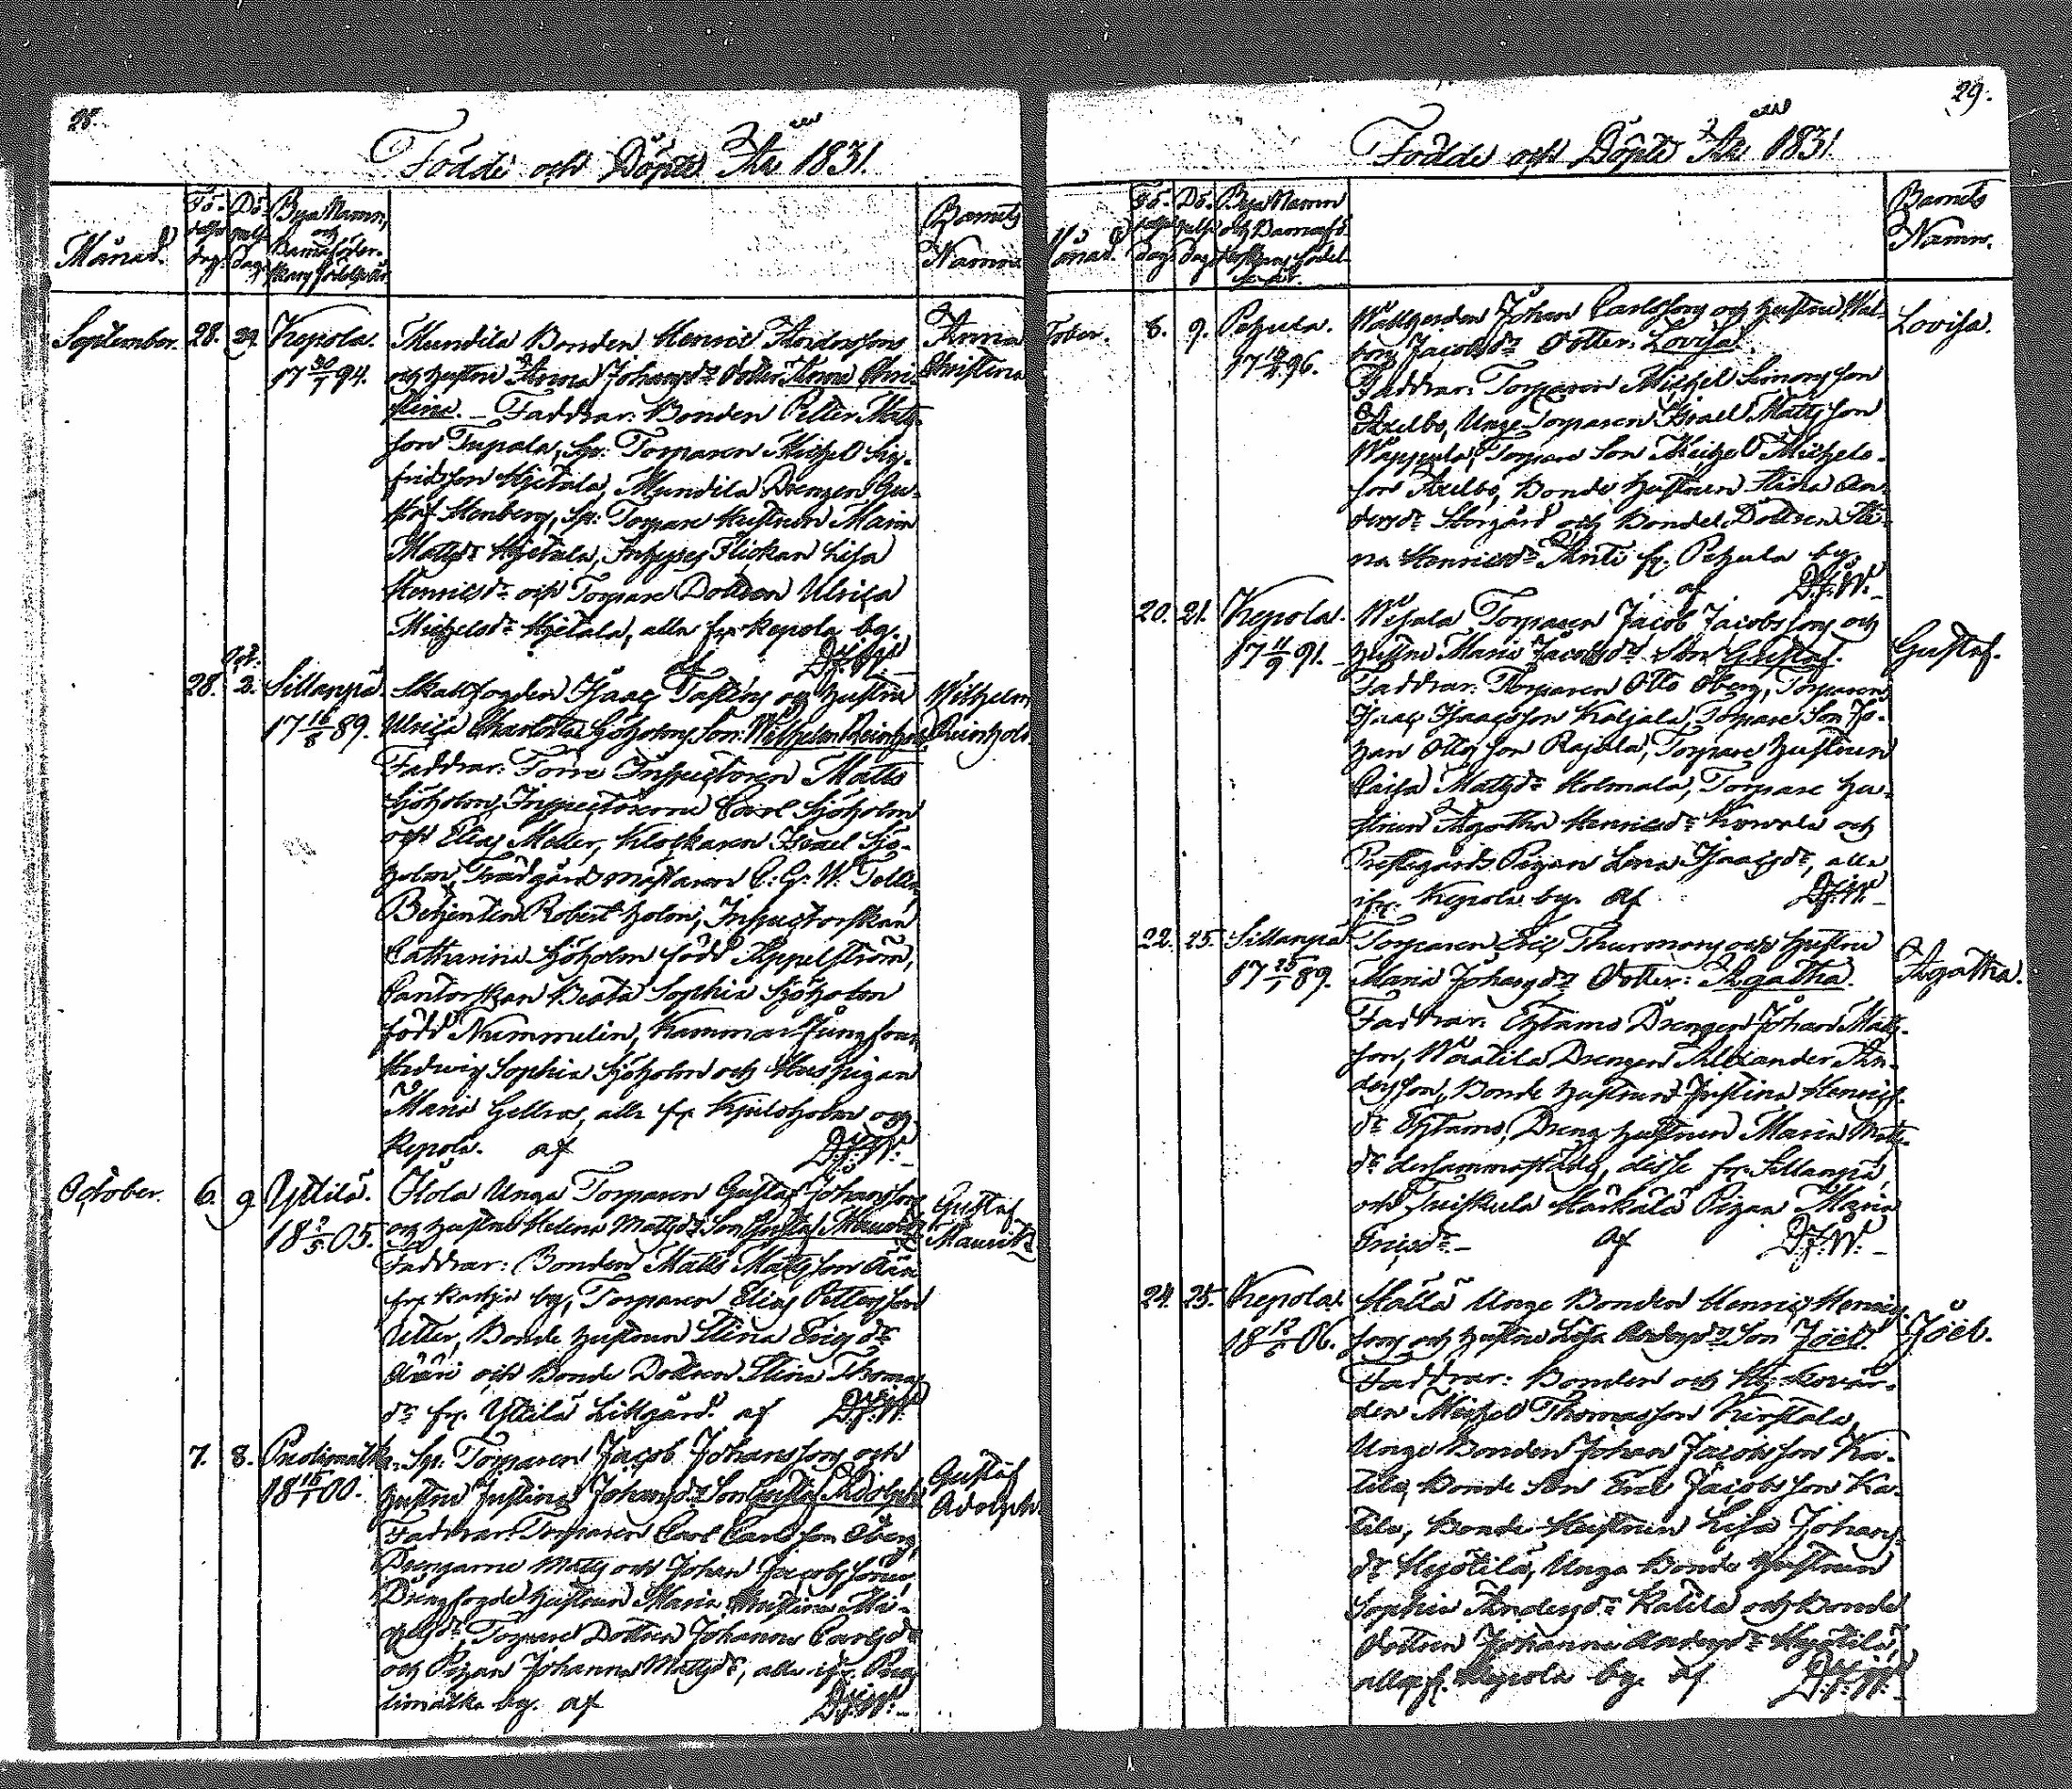 28.
Födde och Döpte År 1831.
Månad.
Fö-
delse
dag.
Dö-
pelse
dag.
Bya Namn,
och
Barnaföder-
skans födelseår.
Barnets
Namn.
September. 28. 29. Kepola. Mundila Bonden Henric Andersson Anna
17 30/7 94. och hustru Anna Johansdr Dotter Anna Chri- Christina
stina. – Faddrar: Bonden Petter Matts-
son Tupala, Sp: Torparen Michel Sig-
fridsson Hjetala, Mundila Drengen Gu-
staf Stenberg, Sp: Torpare Hustrun Maria
Mattsdr Hjetala, Inhyses Flickan Lisa
Henricsdr och Torpare Dottren Ulrica
Michelsdr Hjetala, alla fr. Kepola by.
af D.f.W.
Oct:
28. 2. Sillanpä. Skallfogden Isaac Tasting och hustru Wilhelm
17 16/8 89. Ulrica Charlotta Sjöholms Son: Wilhelm Reinhold. Reinhold.
Faddrar: Förre Inspectoren Matts
Sjöholm, Inspectorerne Carl Sjöholm
och Elias Meller, Klockaren Israel Sjö-
holm, Trädgårdsmästaren C: G: W: Tollet,
Betjenten Robert Holm, Inspectorskan
Catharina Sjöholm född Appelström,
Cantorskan Beata Sophia Sjöholm
född Nummelin, Kammar Jungfrun
Hedwig Sophia Sjöholm och Huspigan
Maria Gellros, alla fr. Kjuloholm och
Kepola. af D.f.W.
October. 6. 9. Yttilä. Ohola Unga Torparen Gustaf Johansson Gustaf
18 2/5 05. och hustru Helena Mattsdr Son Gustaf Mauritz Mauritz
Faddrar: Bonden Matts Mattsson Ääri
fr. Karhja by, Torparen Elias Pettersson
Utter, Bonde hustrun Stina Ericsdr
Ääri och Bonde Dottren Stina Thomas
dr fr. Yttilä Lillgård. af D.f.W.
7. 8. Puolimatka. Sp: Torparen Jacob Johansson och Gustaf
18 16/1 00. hustru Justina Johansdr Son Gustaf Adolph Adolph.
Faddrar: Torparen Carl Carlsson Öberg,
Drengarne Matts och Johan Jacobssöner,
Drengfogde hustrun Maria Christina Mi-
chelsdr, Torpare Dottren Johanna Carlsdr
och Pigan Johanna Mattsdr, alla ifr. Puo-
limatka by. af D.f.W.
29.
Födde och Döpte År 1831
Månad.
Fö-
delse
dag.
Dö-
pelse
dag.
Bya Namn
och Barnafö-
derskans födel-
se år.
Barnets
Namn.
tober. 8. 9. Pehula. Johan Carlsson och hustru Wal- Lovisa.
17 96. borg Jacobsdr Dotter: Lovisa.
Faddrar: Torparen Michel Simonsson
Axelbo, Unge Torparen Israel Mattsson
Wäppula, Torpare Son Michel Michels-
son Axelbo, Bonde hustrun Stina An-
dersdr Storgård och Bonde Dottren Sti-
na Henricsdr Anti fr. Pehula by.
af D.f.W.
20. 21. Kepola. Wehala Torparen Jacob Jacobsson och
17 11/9 91. hustru Maria Jacobsdr Son Gustaf. Gustaf.
Faddrar: Torparen Otto Öberg, Torparen
Isaac Isaacsson Kaljala, Torpare Son Jo-
han Ottosson Rajala, Torpare hustrun
Caisa Mattsdr Holmala, Torpare hu-
strun Agatha Henricsdr Kowala och
Prestegårds Pigan Lena Isaacsdr, alla
ifr. Kepola by. af D.f.W.
22. 25. Sillanpä Torparen Eric Thurmans och hustru
17 25/1 89. Maria Johansdr Dotter: Agatha. Agatha.
Faddrar: Ehtamo Drengen Johan Matts-
son, Wäätilä Drengen Alexander An-
dersson, Bonde hustrun Justina Henrics-
dr Ehtamo, Dreng hustrun Maria Matts-
dr dersammastädes, desse fr. Sillanpä,
och Tuiskula Härkälä Pigan Maria
Ericsdr – af D.f.W.
24. 25. Kepola. Hälla Unge Bonden Henric Henrics-
18 12/6 06. sons och hustru Lisa Andersdr Son Joël. Joël.
Faddrar: Bonden och Kyrkovär-
den Michel Thomasson Kirstala,
Unge Bonden Johan Jacobsson Ka-
tila, Bonde Son Eric Jacobsson Ka-
tila, Bonde Hustrun Lisa Johans-
dr Hyötilä, Unga Bonde hustrun
Sophia Andersdr Katila och Bonde
Dottren Johanna Andersdr Hyötilä,
alla fr. Kepola by. af D.f.W.